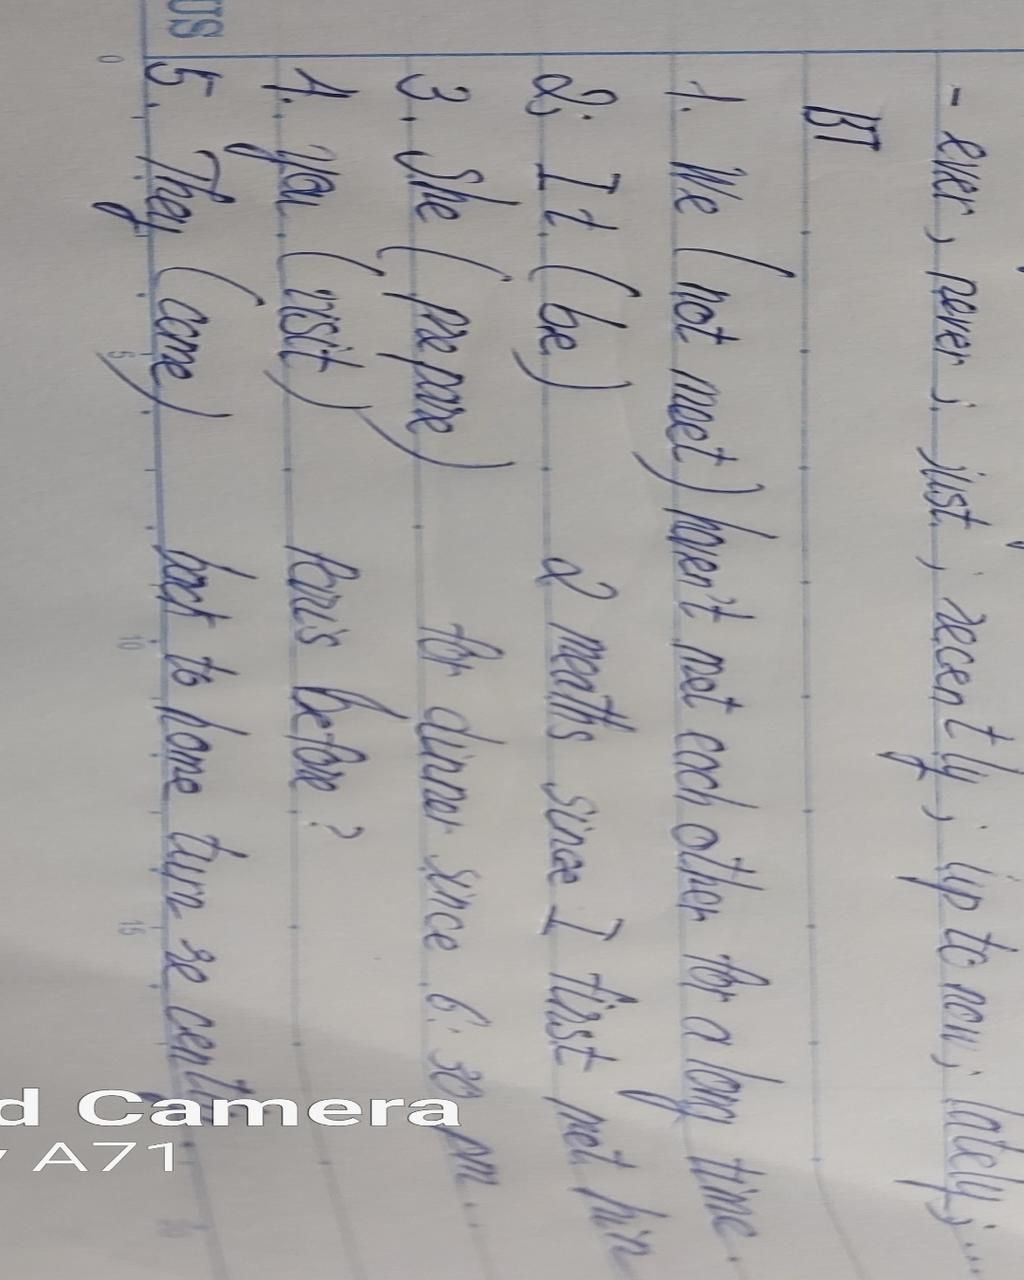 - ever, never; just; recently; up to now; lately; ...
BT
1. We (not meet) haven't met each other for a long time.
2. It (be) 2 months since I first met him
3. She (prepare) for dinner since 6:30 pm..
4. you (visit) Paris before?
5. They (come) back to home turn recently
US
0 5 10 15
d Camera
A71